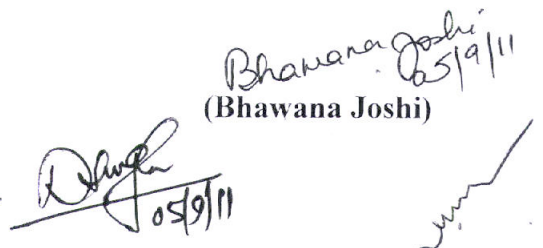 Bhawana Joshi
05/9/11
(Bhawana Joshi)
05/9/11